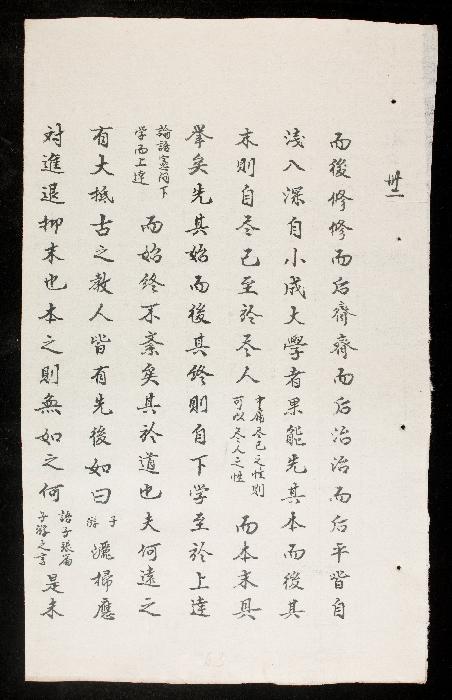 卅一
而後修修而后齊齊而后治治而后平皆自
淺入深自小成大學者果能先其本而後其
末則自尽己至於尽人中庸尽己之性則可以尽人之性而本末具
舉矣先其始而後其終則自下学至於上達
論語憲问下学而上達而始終不紊矣其於道也夫何遠之
有大抵古之教人皆有先後如曰子游灑掃應
对進退抑末也本之則無如之何語子張篇子游之言是末